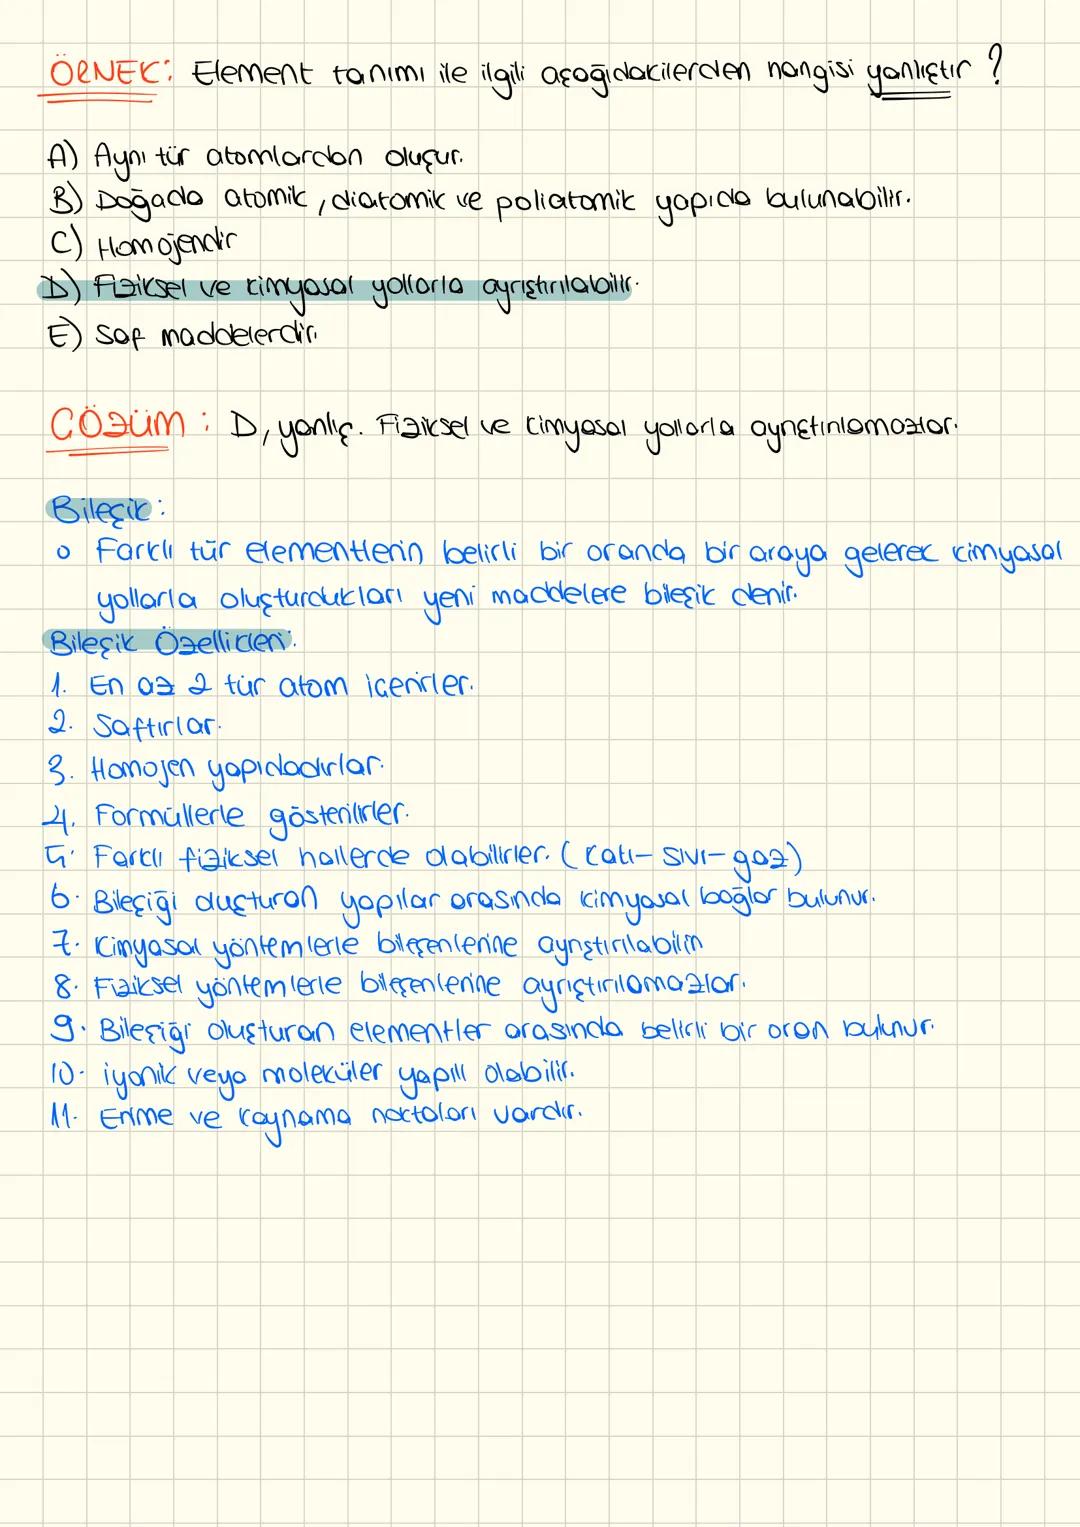 ÖRNEK: Element tanımı ile ilgili aşağıdakilerden hangisi yanlıştır ?
A) Aynı tür atomlardan oluşur.
B) Doğada atomik, diatomik ve poliatomik yapıda bulunabilir.
C) Homojendir
D) Fiziksel ve kimyasal yollarla ayrıştırılabilir.
E) Saf maddelerdir.
ÇÖZÜM : D, yanlış. Fiziksel ve kimyasal yollarla ayrıştırılamazlar.
Bileşik:
o Farklı tür elementlerin belirli bir oranda bir araya gelerek kimyasal
yollarla oluşturdukları yeni maddelere bileşik denir.
Bileşik Özellikleri:
1. En az 2 tür atom içerirler.
2. Saftırlar.
3. Homojen yapıdadırlar.
4. Formüllerle gösterilirler.
5. Farklı fiziksel hallerde olabilirler. (Katı-sıvı-gaz)
6. Bileşiği oluşturan yapılar arasında kimyasal bağlar bulunur.
7. Kimyasal yöntemlerle bileşenlerine ayrıştırılabilir
8. Fiziksel yöntemlerle bileşenlerine ayrıştırılamazlar.
9. Bileşiği oluşturan elementler arasında belirli bir oran bulunur.
10. iyonik veya moleküler yapılı olabilir.
11. Erime ve kaynama noktaları vardır.